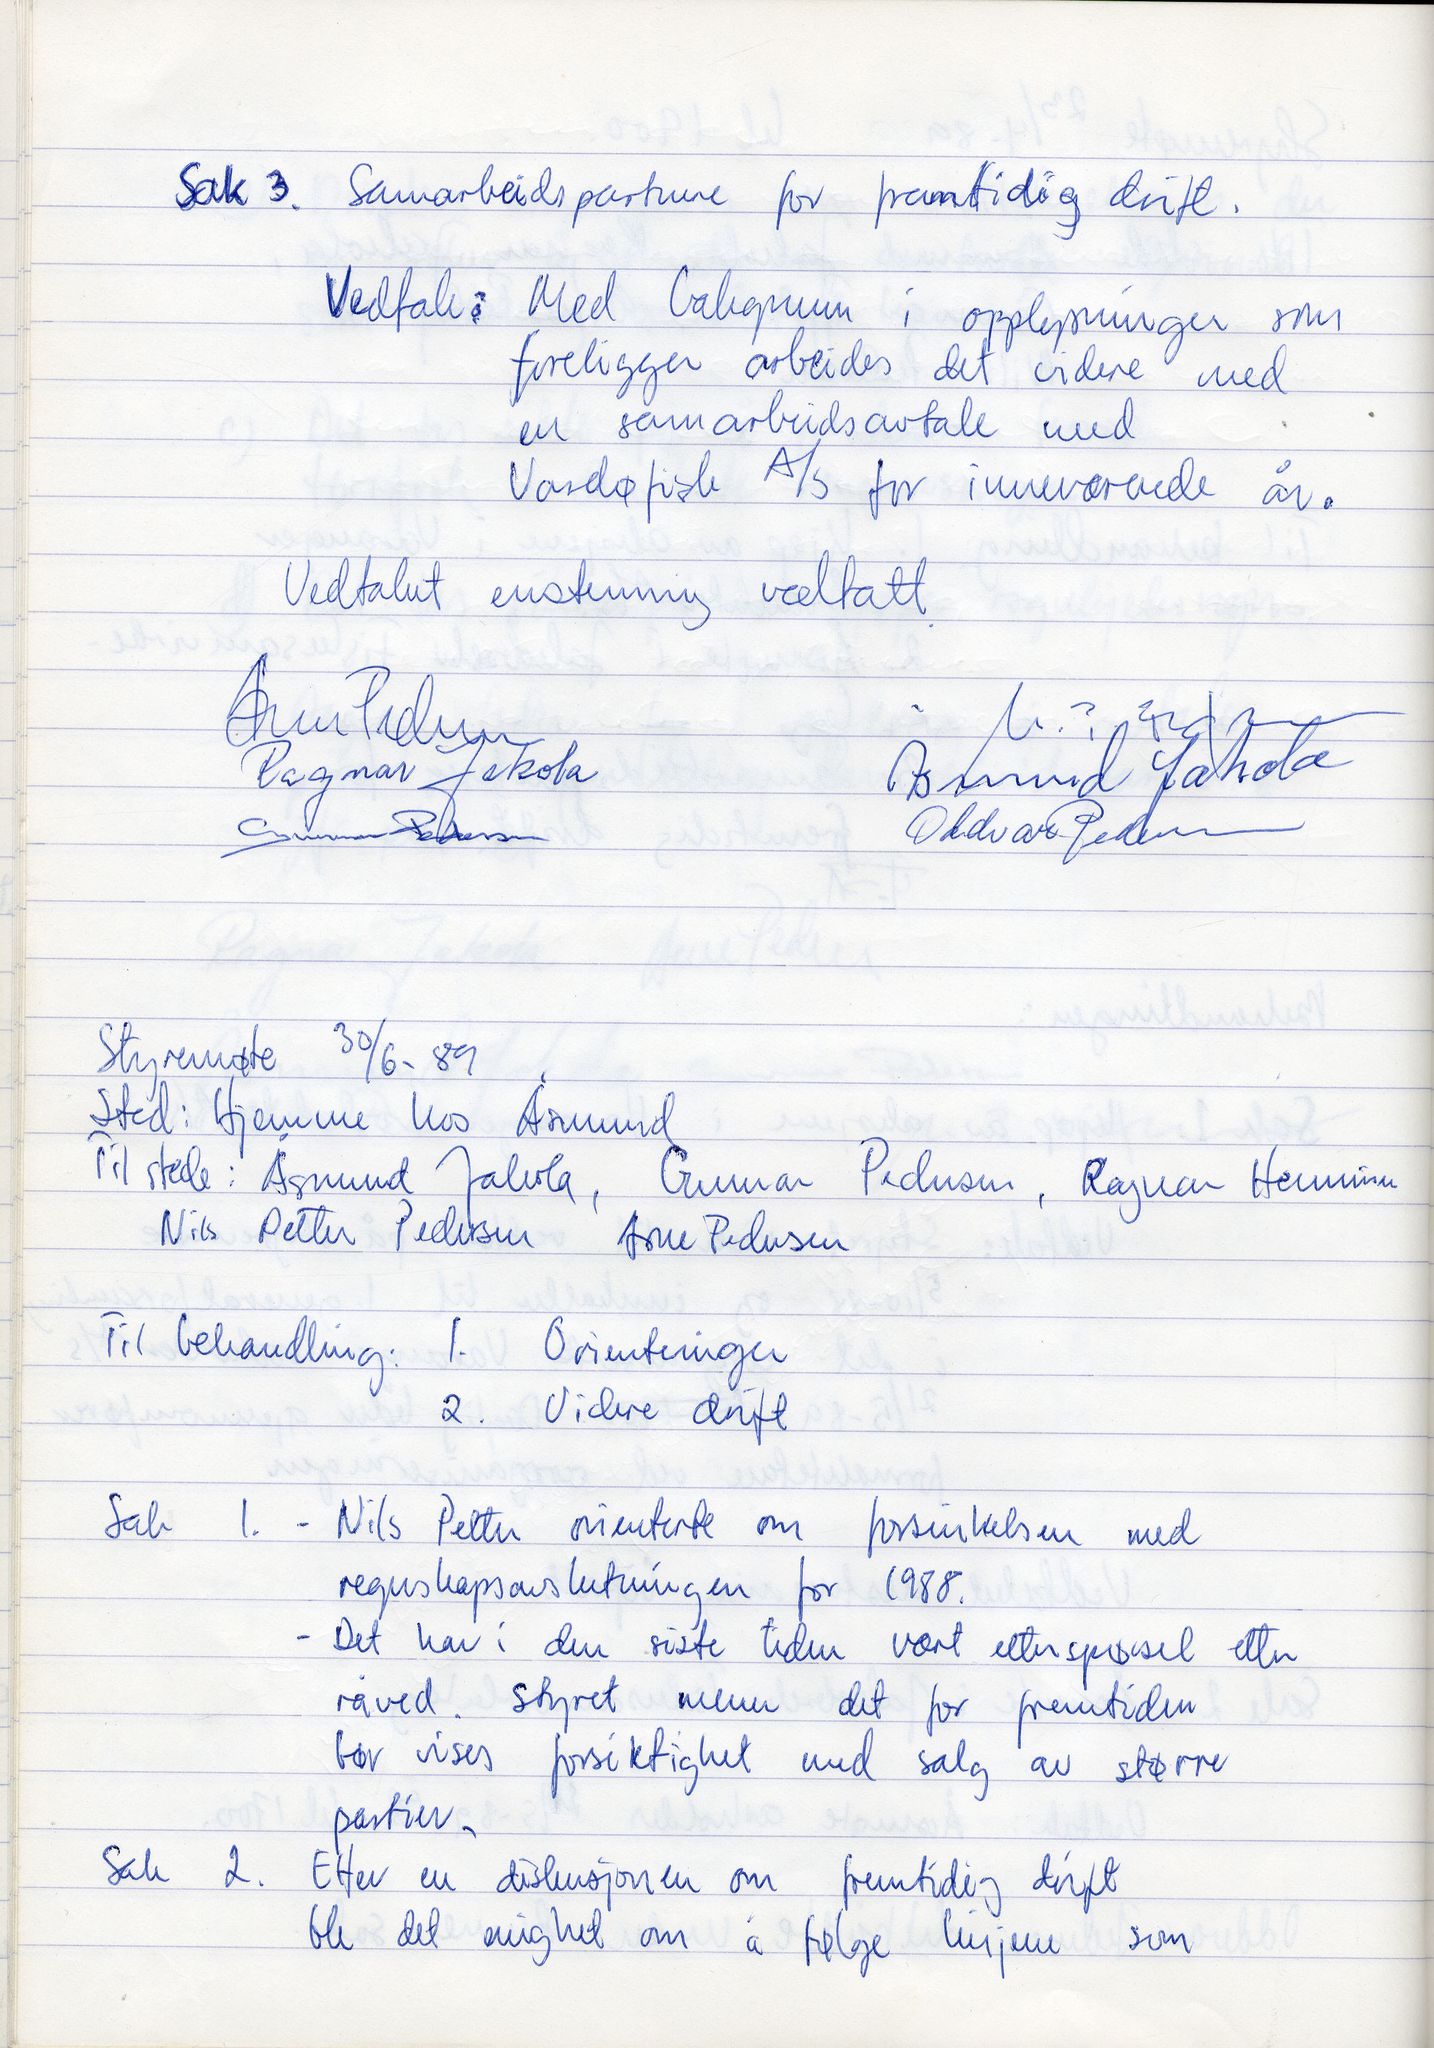 Sak 3. Samarbeidspartnere for framtidig drift.
Vedtak: Med bakgrunn i opplysninger som
foreligger arbeides det videre med
en samarbeidsavtale med
Vardøfisk A/S for inneværende år.
Vedtaket enstemmig vedtatt.
Arne Pedersen
Ragnar Jakola Åsmund Jakola
Gunnar Pedersen Oddvar Pedersen
Styremøte 30/6-89
Sted: Hjemme hos Åsmund
Til stede: Åsmund Jakola, Gunnar Pedersen, Ragnar
Nils Petter Pedersen Arne Pedersen
Til behandling: 1. Orienteringer
2. Videre drift
Sak 1. - Nils Petter orienterte om forsinkelsen med
regnskapsavslutningen for 1988.
- Det har i den siste tiden vært etterspørsel etter
råved. Styret mener det for fremtiden
bør vises forsiktighet med salg av større
partier.
Sak 2. Etter en diskusjonen om fremtidig drift
ble det enighet om å følge linjene som